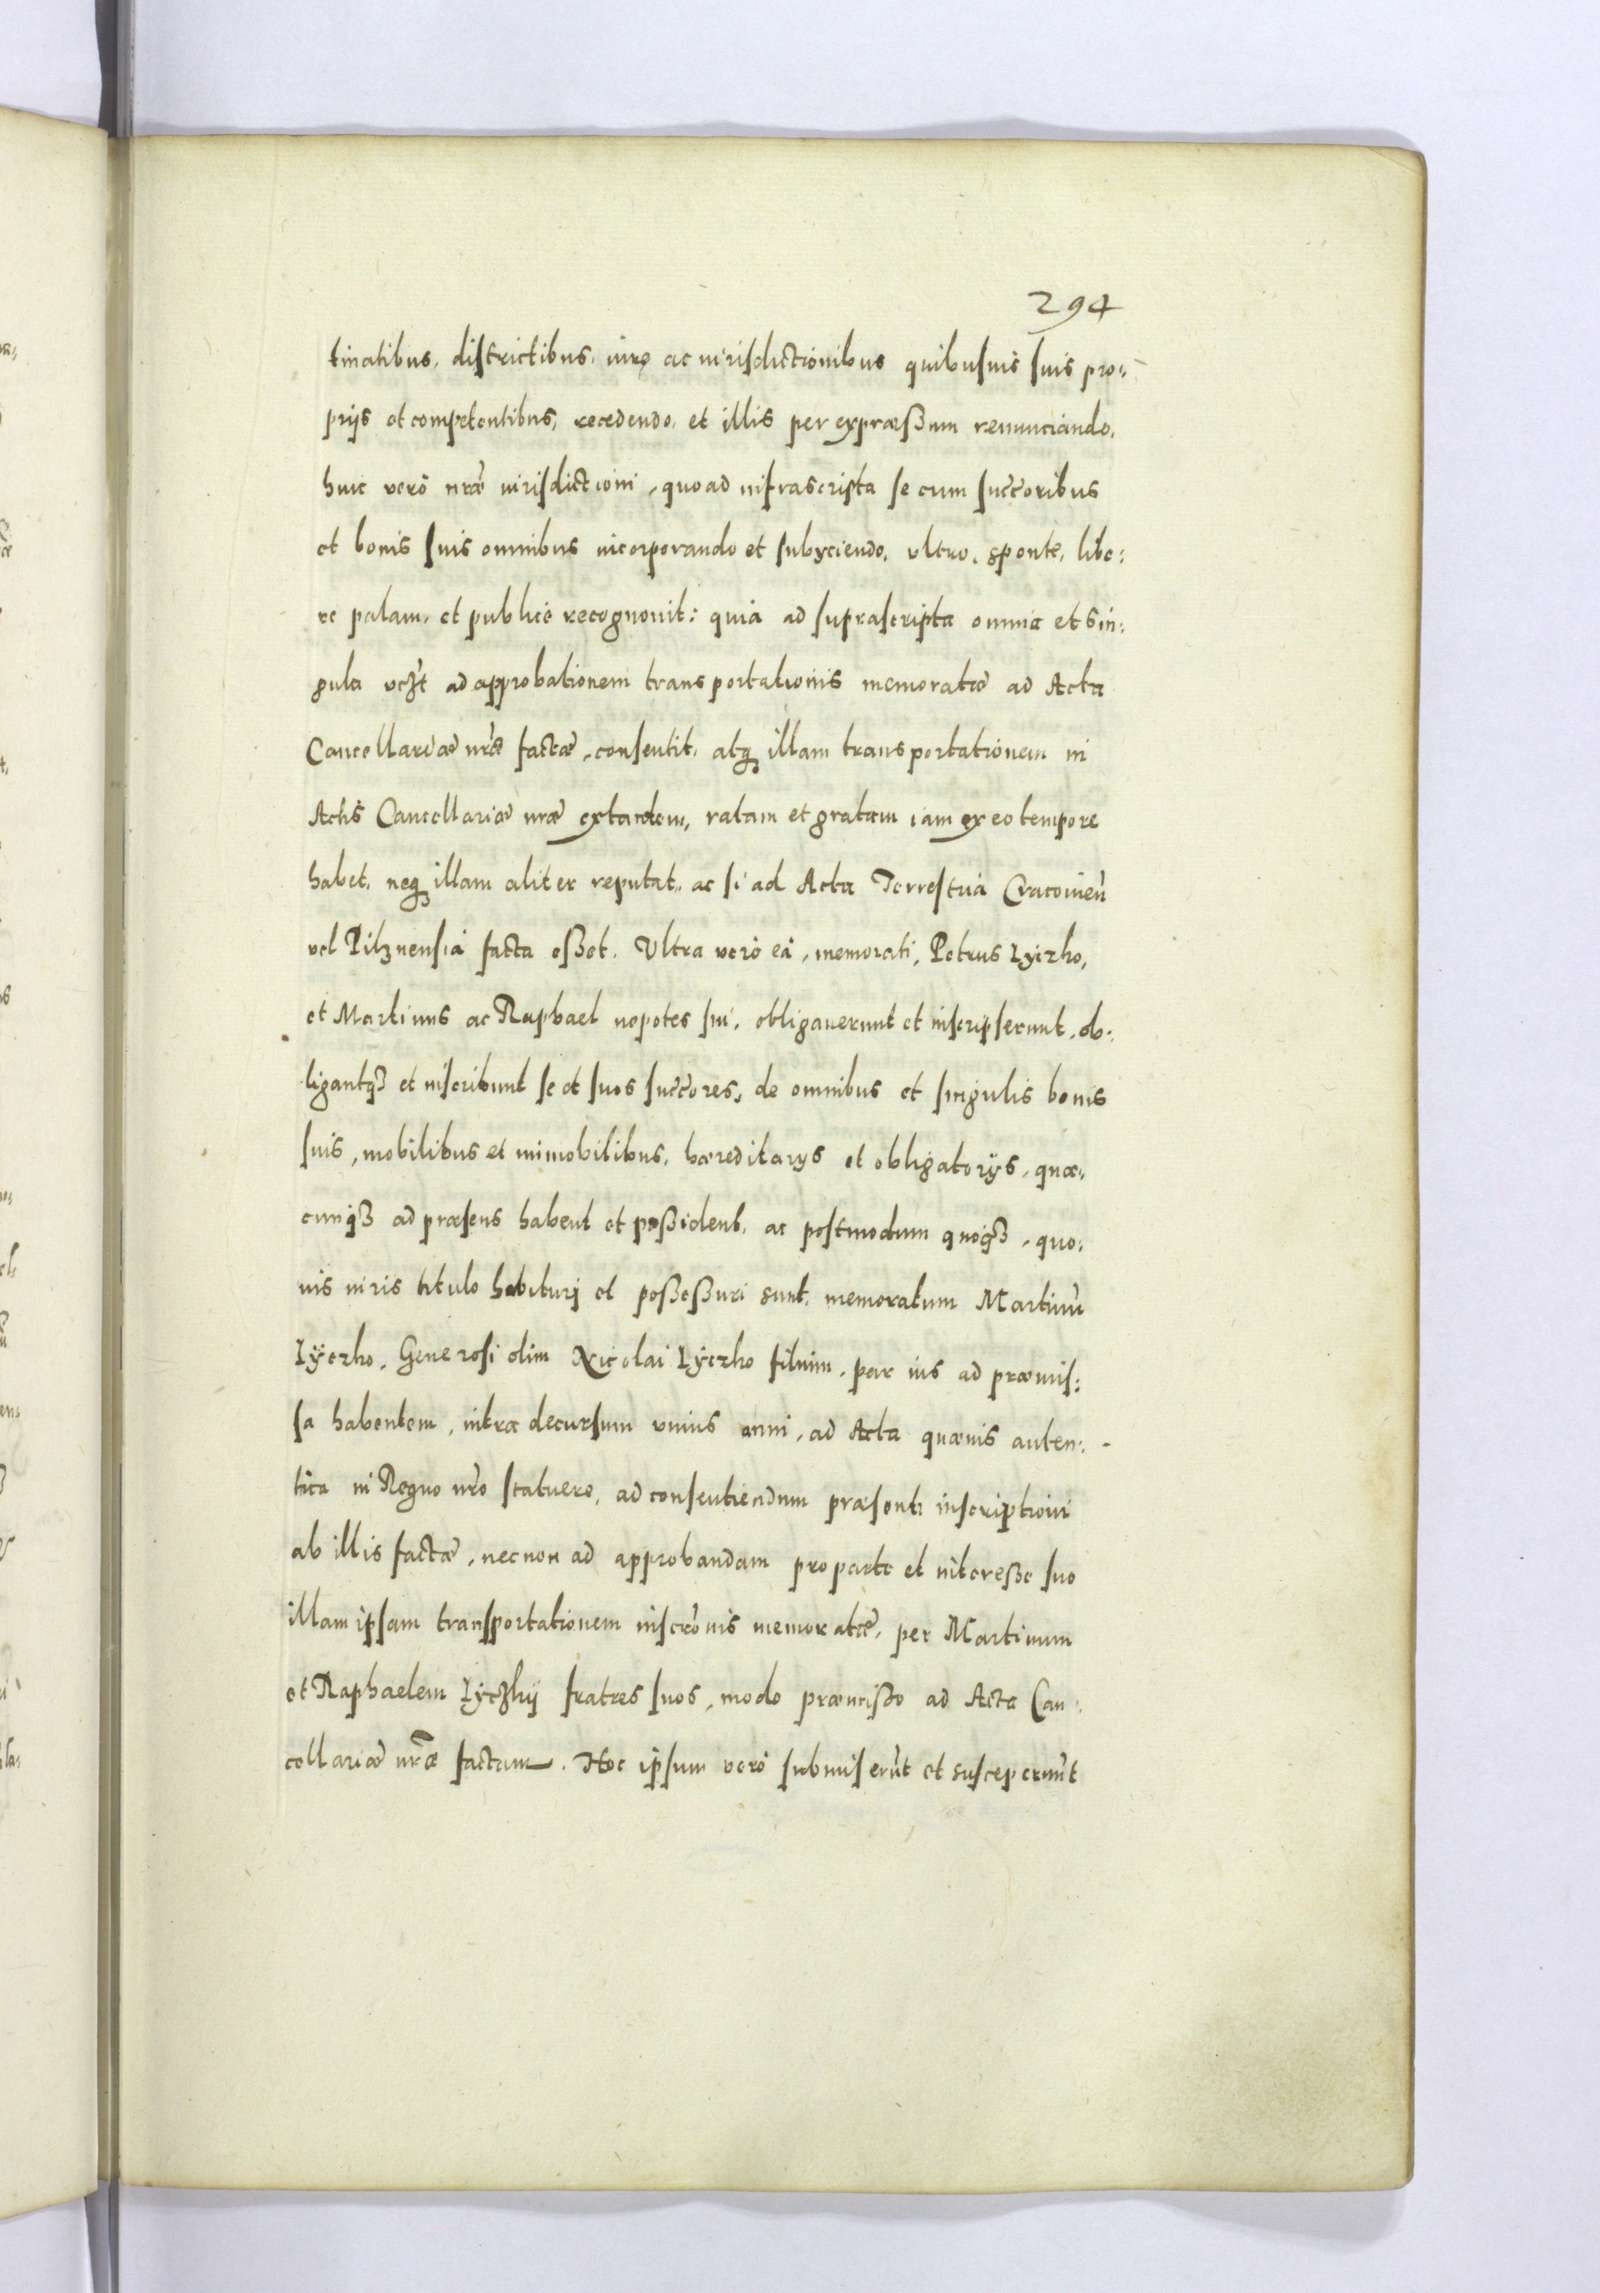 294
tinatibus, districtibus, iure ac iurisdictionibus quibusuis suis pro-
prijs et competentibus, recedendo, et illis per expræßum renunciando,
huic vero nr̃æ iurisdictioni, quoad infrascripta se cum succ̃oribus
et bonis suis omnibus incorporando et subyciendo, vltro, sponte, libe-
re palam, et publice recognouit: quia ad suprascripta omnia et sin-
gula vczt ad approbationem transportationis memoratæ ad Acta
Cancellariæ nr̃æ factæ, consentit, atq̃ illam transportationem in
Actis Cancellariæ nr̃æ extantem, ratam et gratam iam ex eo tempore
habet, neq̃ illam aliter reputat, ac si ad Acta Terrestria Cracouien̄
vel Pilznensia facta eßet. Vltra vero ea, memorati, Petrus Lyczko,
et Martinus ac Raphael nepotes sui, obligauerunt et inscripserunt, ob-
ligantqȝ et inscribunt se et suos succ̃ores, de omnibus et singulis bonis
suis, mobilibus et immobilibus, hæreditarys et obligatorijs, quæ-
cunqȝ ad præsens habent et poßident, ac postmodum quoqȝ, quo-
uis iuris titulo habituri et poßeßuri sunt, memoratum Martinū
Lyczko, Generosi olim Nicolai Lyczko filium, par ius ad præmis-
sa habentem, intra decursum vnius anni, ad Acta quæuis auten-
tica in Regno nr̃o statuere, ad consentiendum præsenti inscriptioni
ab illis factæ, necnon ad approbandam pro parte et intereße suo
illam ipsam transportationem inscr̃onis memoratæ, per Martinum
et Raphaelem Lyczkij fratres suos, modo præmißo ad Acta Can-
cellariæ nr̃æ factam. Hoc ipsum vero submiserūt et susceperūnt